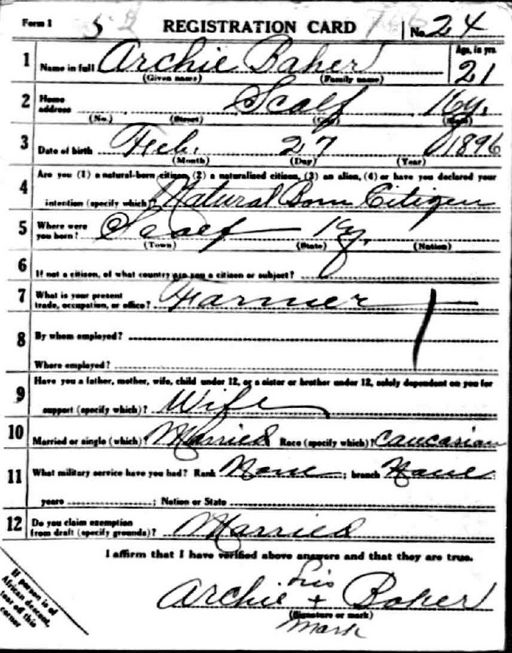 Form 1 52 REGISTRATION CARD No. 24
1 Name in full Archie Baker Age, in yrs. 21
(Given name) (Family name)
2 Home address Scalf Ky.
(No.) (Street) (City) (State)
3 Date of birth Feb. 27 1896
(Month) (Day) (Year)
4 Are you (1) a natural-born citizen, (2) a naturalized citizen, (3) an alien, (4) or have you declared your
intention (specify which)? Natural Born Citizen
5 Where were you born? Scalf Ky.
(Town) (State) (Nation)
6 If not a citizen, of what country are you a citizen or subject?
7 What is your present trade, occupation, or office? Farmer
8 By whom employed?
Where employed?
9 Have you a father, mother, wife, child under 12, or a sister or brother under 12, solely dependent on you for
support (specify which)? Wife
10 Married or single (which)? Married Race (specify which)? Caucasian
11 What military service have you had? Rank None ; branch None
years ; Nation or State
12 Do you claim exemption from draft (specify grounds)? Married
I affirm that I have verified above answers and that they are true.
his
Archie + Baker
(Signature or mark)
mark
If person is of
African descent,
tear off this
corner